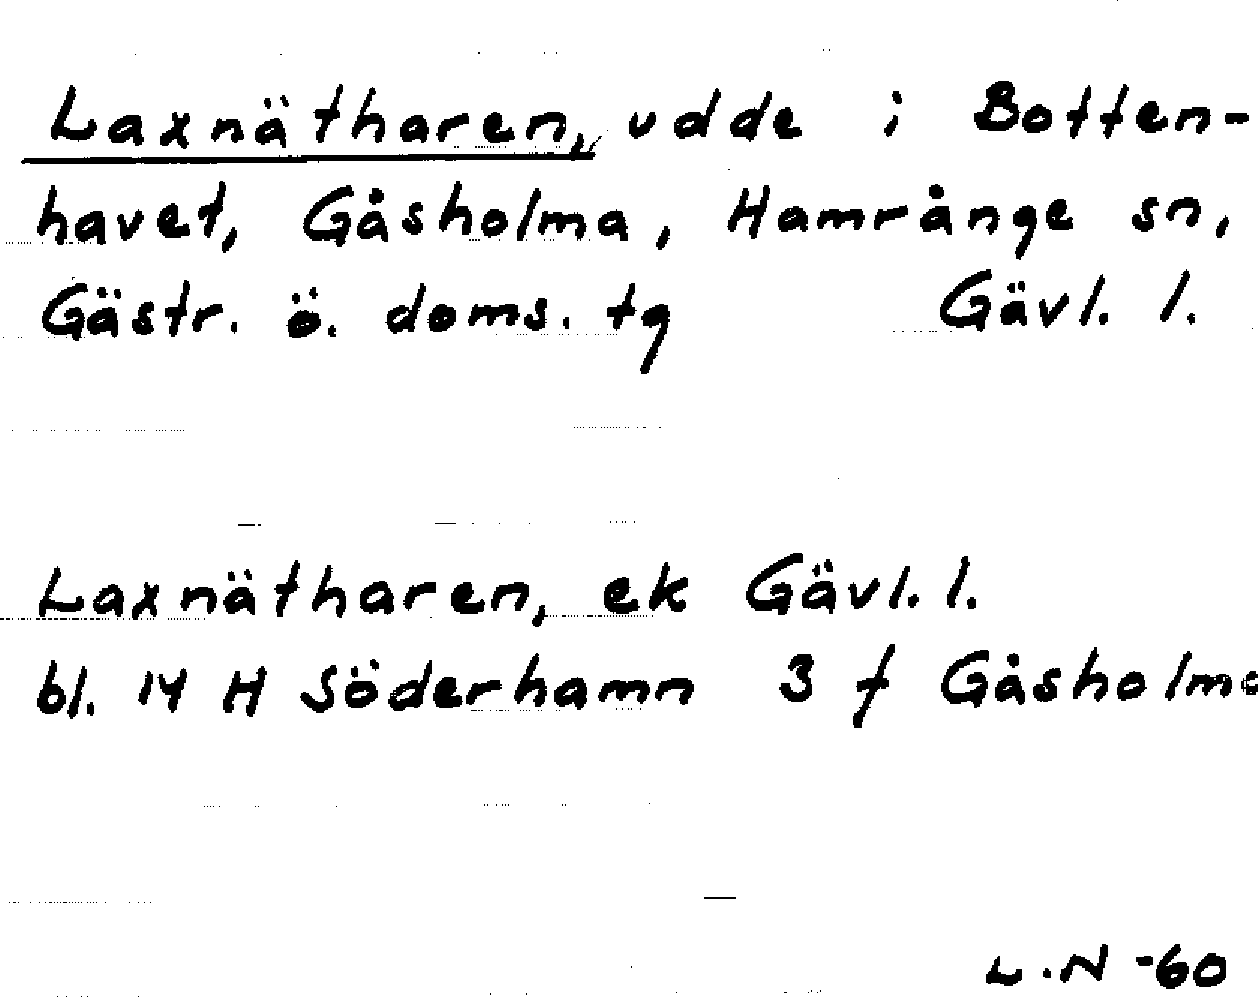 Laxnätharen, udde i Botten-
havet, Gåsholma, Hamrånge sn,
Gästr. ö. doms. tg Gävl. l.
Laxnätharen, ek Gävl. l.
bl. 14 H Söderhamn 3 f Gåsholma
L.N -60